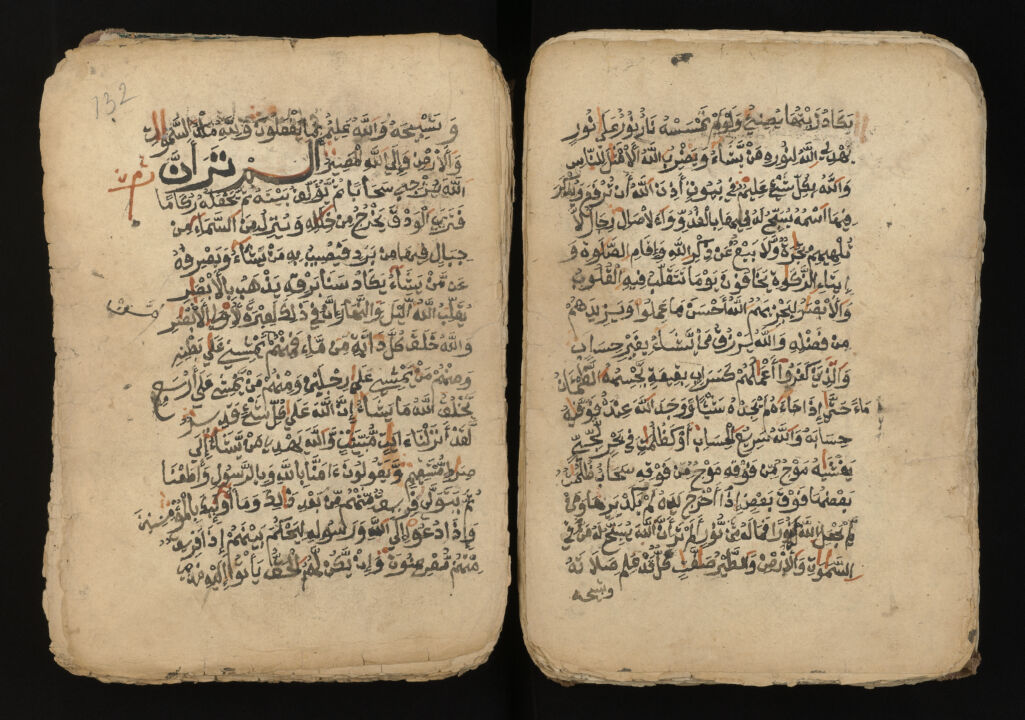 يكاد زيتها يضيء ولو لم تمسسه نار نور على نور
يهدي الله لنوره من يشاء ويضرب الله الأمثل للناس
والله بكل شيء عليم في بيوت أذن الله أن ترفع ويذكر
فيها اسمه يسبح له فيها بالغدو والاصال رجال لا
تلهيهم تجرة ولا بيع عن ذكر الله وإقام الصلوة و
إيتاء الزكوة يخافون يوما تتقلب فيه القلوب
والأبصر ليجزيهم الله أحسن ما عملوا ويزيدهم
من فضله والله يرزق من يشاء بغير حساب
والذين كفروا أعملهم كسراب بقيعة يحسبه الظمئان
ماء حتى إذا جاءه لم يجده شيئا ووجد الله عنده فوفيه
حسابه والله سريع الحساب أو كظلمت في بحر لجي
يغشيه موج من فوقه موج من فوقه سحاب ظلمت
بعضها فوق بعض إذا أخرج يده لم يكد يريها ومن
لم يجعل الله له نورا فما له من نور ألم تر أن الله يسبح له من في
السموت والأرض والطير صفت كل قد علم صلاته
وتسبيحه
132
وتسبيحه والله عليم بما يفعلون ولله ملك السموت
والأرض وإلى الله المصير ألم تر أن
الله يزجي سحابا ثم يؤلف بينه ثم يجعله ركاما
فترى الودق يخرج من خلله وينزل من السماء من
جبال فيها من برد فيصيب به من يشاء ويصرفه
عن من يشاء يكاد سنا برقه يذهب بالأبصر
يقلب الله اليل والنهار إن في ذلك لعبرة لأولي الأبصر
والله خلق كل دابة من ماء فمنهم من يمشي على بطنه
ومنهم من يمشي على رجلين ومنهم من يمشي على أربع
يخلق الله ما يشاء إن الله على كل شيء قدير
لقد أنزلنا ءايت مبينت والله يهدي من يشاء إلى
صرط مستقيم ويقولون ءامنا بالله وبالرسول وأطعنا
ثم يتولى فريق منهم من بعد ذلك وما أولئك بالمؤمنين
وإذا دعوا إلى الله ورسوله ليحكم بينهم إذا فريق
منهم معرضون وإن يكن لهم الحق يأتوا إليه